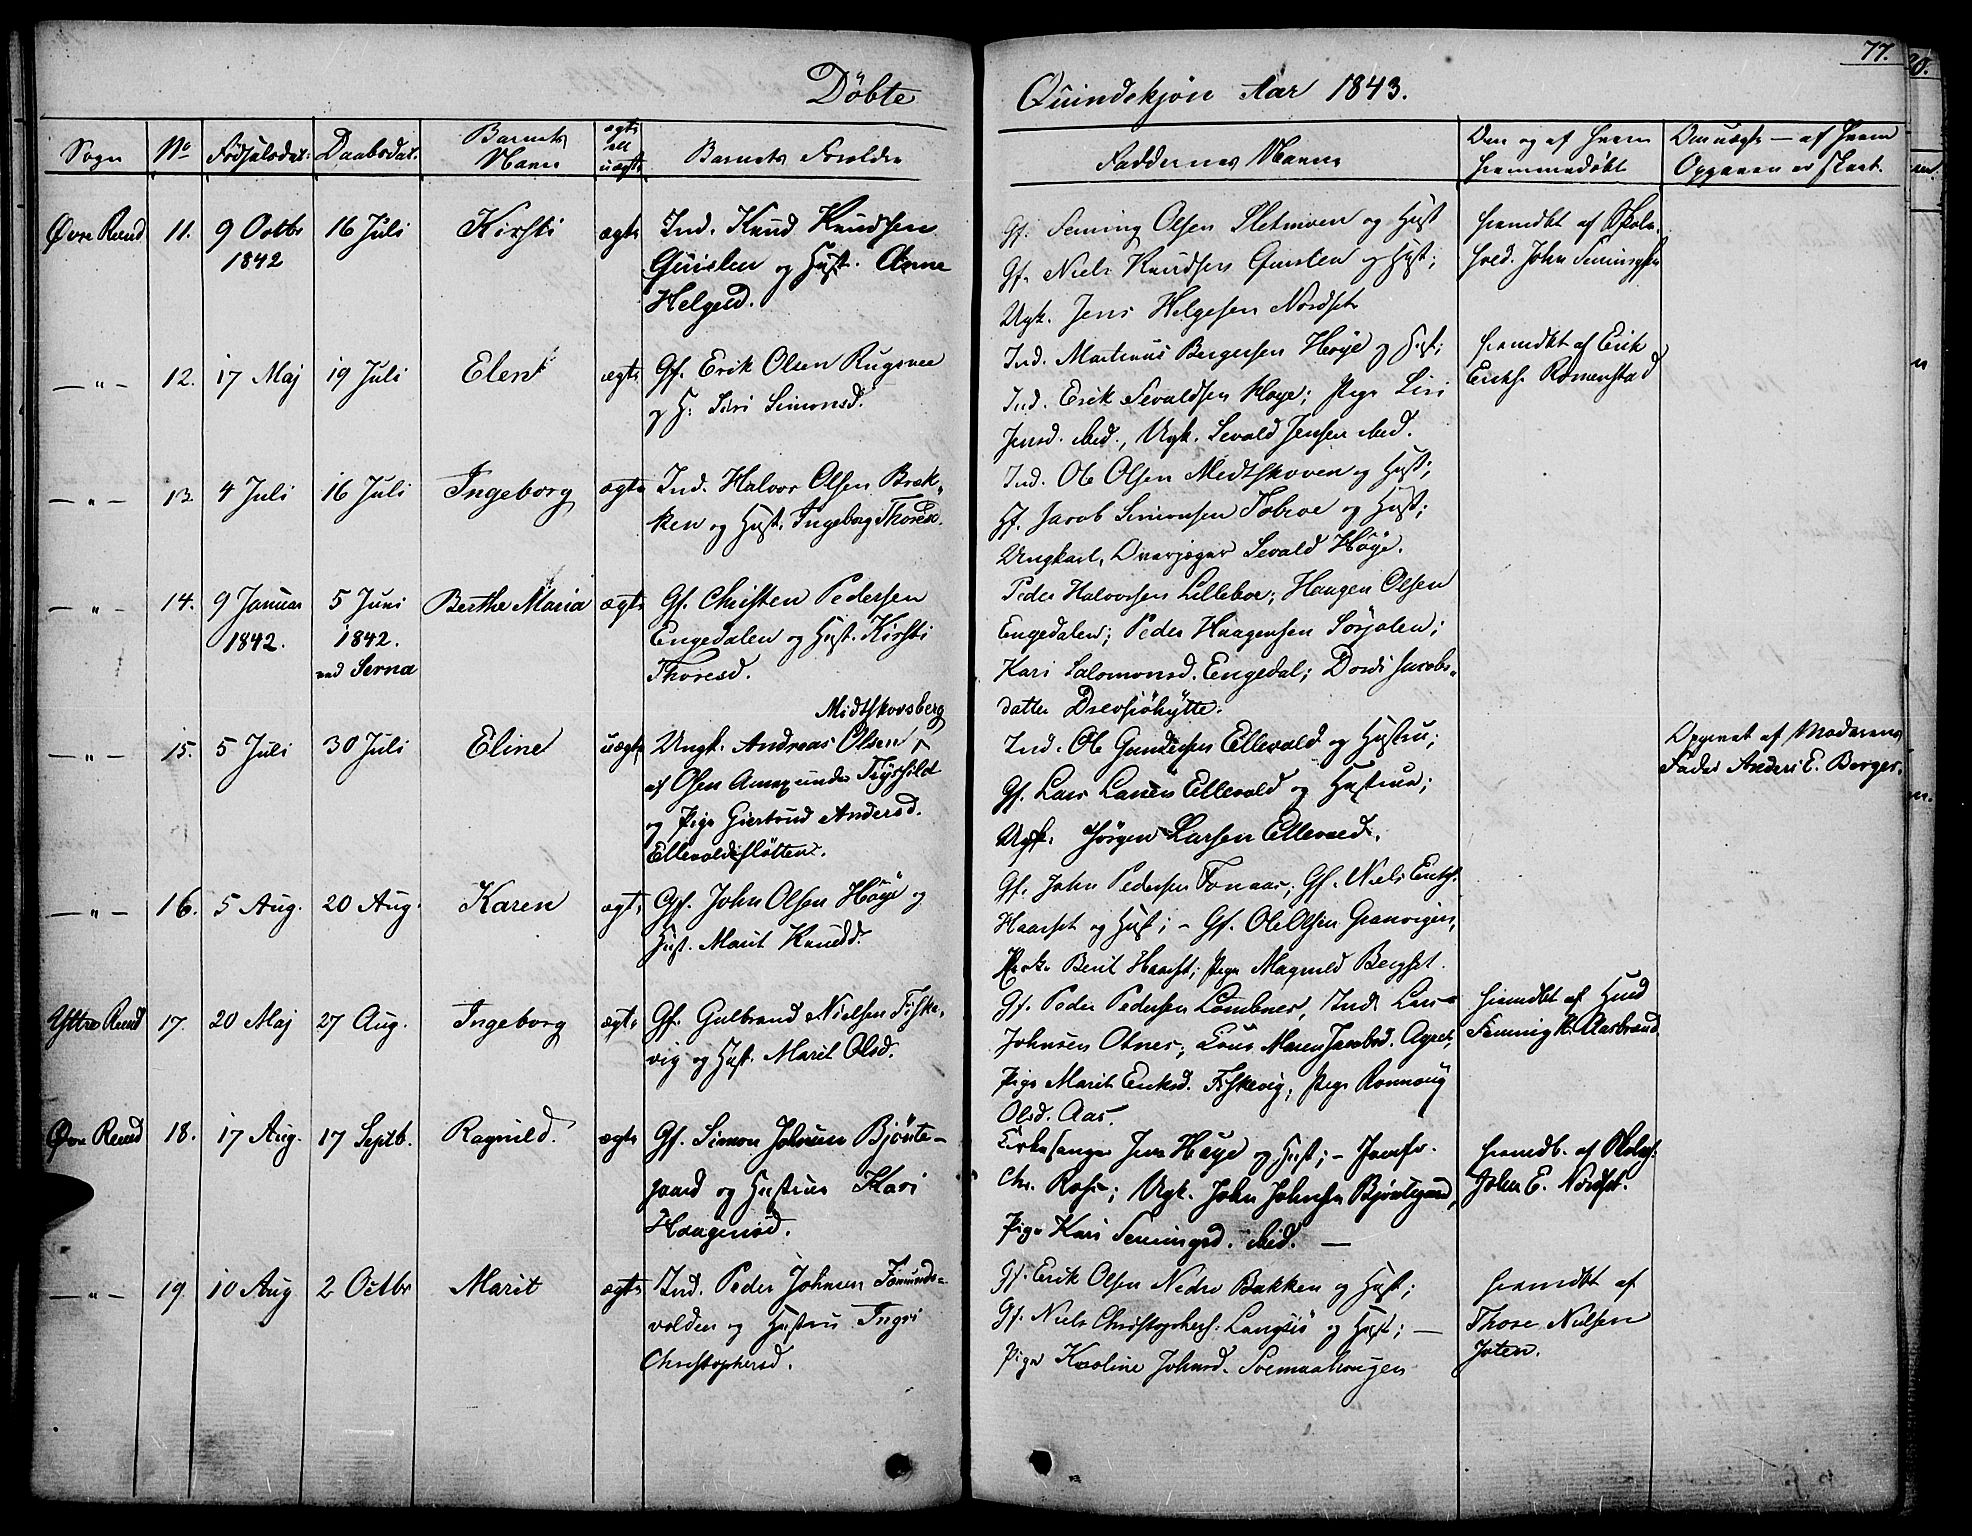 77.
Døbte Qvindekjøn Aar 1843.
Sogn No Fødselsdat. Daabsdat. Barnets Navn ægte ell uægte Barnets Forældre Faddernes Navne Om og af hvem hjemmedøbt Om uægte — af hvem Opgaven er skeet.
Øvre Rend 11. 9 Octbr 1842 16 Juli Kirsti ægte
Ind. Knud Knudsen
og Hust. Anne
Helgesd.
Gf. Semming Olsen Sletmoen og Hust
Gf. Niels Knudsen og Hust;
Ugk. Jens Helgesen Nordset
hjemdbt af Skole-
hold. John Semingsen
— " — 12. 17 Maj 19 Juli Elen ægte
Gf. Erik Olsen Rugsvee
og H: Siri Simonsd.
Ind. Martinus Bergersen Høye og Hust;
Ind. Erik Sevaldsen Høye; Pige Siri
Jensd. ibid., Ugk. Sevald Jensen ibid.
hjemdbt af Erik
Eriks. Romenstad
— " — 13. 4 Juli 16 Juli Ingeborg ægte
Ind. Halvor Olsen Bræk-
ken og Hust. Ingeborg Thoresd.
Ind. Ole Olsen Midtskoven og Hust;
Gf. Jacob Simonsen Fobroe og Hust;
Ungkarl, Sevald Høye.
— " — 14. 9 Januar 1842. 5 Juni 1842. ved Serna Berthe Maria ægte
Gf. Christen Pedersen
Engedalen og Hust. Kirsti
Thoresd.
Peder Halvorsen Lilleboe; Haagen Olsen
Engedalen; Peder Haagensen Sørjolen;
Kari Salomonsd. Engedal; Dordi Jacobs-
datter Drevsjöhytte.
— " — 15. 5 Juli 30 Juli Eline uægte
Midtskovsberg
Ungk. Andreas Olsen
af Osen Annex under Trysild
og Pige Giertrud Andersd.
Ellevoldsfløtten.
Ind. Ole Gundersen Ellevold og Hustru;
Gf. Lars Larsen Ellevold og Hustrue;
Ugk. Jørgen Larsen Ellevold.
Opgivet af Moderens
Fader Anders E. Berger.
— " — 16. 5 Aug. 20 Aug. Karen ægte
Gf. John Olsen Høye og
Hust. Marit Knudsd.
Gf. John Pedersen Fonaas; Gf. Niels Eriks.
Haarset og Hust; – Gf. Ole Olsen Granvigen,
Berit Haarset; Pige Magnild Bergset.
Yttre Rend 17. 20 Maj 27 Aug. Ingeborg ægte
Gf. Gulbrand Nielsen Fiske-
vig og Hust. Marit Olsd.
Gf. Peder Pedersen Lombnes, Ind. Lars
Johnsen Otnes; Maren Jacobsd. Agret,
Pige Marit Eriksd. Fiskevig; Pige Ronnoug
Olsd. Aas.
hjemdbt af
Semming K. Aasbrænd
Øvre Rend 18. 17 Aug. 17 Septb. Ragnild. ægte
Gf. Simon Johnsen Bjønte-
gaard og Hustrue Kari
Haagensd.
Kirkesanger Jens Høye og Hust; – Jomfr.
Chr. Ugk. John Johnsen Bjøntegaard,
Pige Kari Semingsd. ibid. —
hjemdb. af Skoleh.
John E. Nordset.
— " — 19. 10 Aug 2 Octbr Marit ægte
Ind. Peder Johnsen Fæmunds-
volden og Hustru Ingri
Christophersd.
Gf. Erik Olsen Nedre Bakken og Hust;
Gf. Niels Christophers. Langsiö og Hust; —
Pige Karoline Johnsd. Svemaahougen
hjemdbt af
Thore Nielsen
Joten.